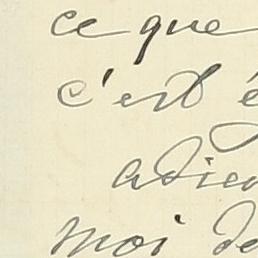 ce que
c'est é
adieu
moi de